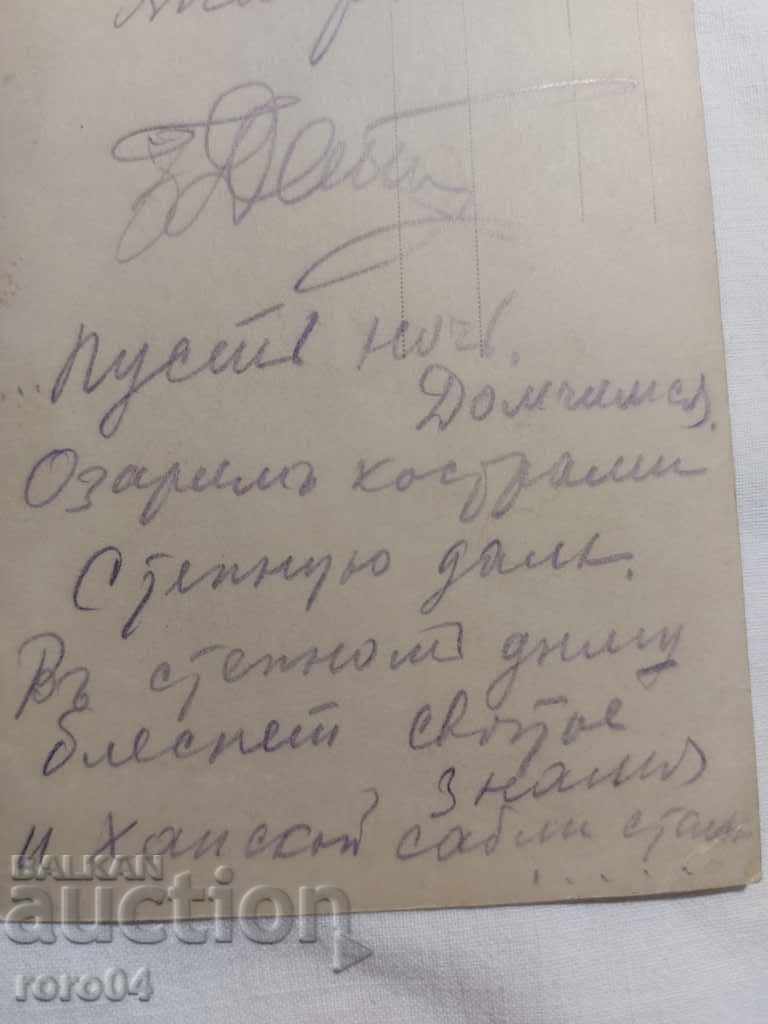 ...Пусть ночь.
Домчимся.
Озаримъ кострами
Степную даль.
Въ степномъ дыму
блеснет святое
знамя
и Ханской сабли сталь
. . . . .
BALKAN
auction
roro04